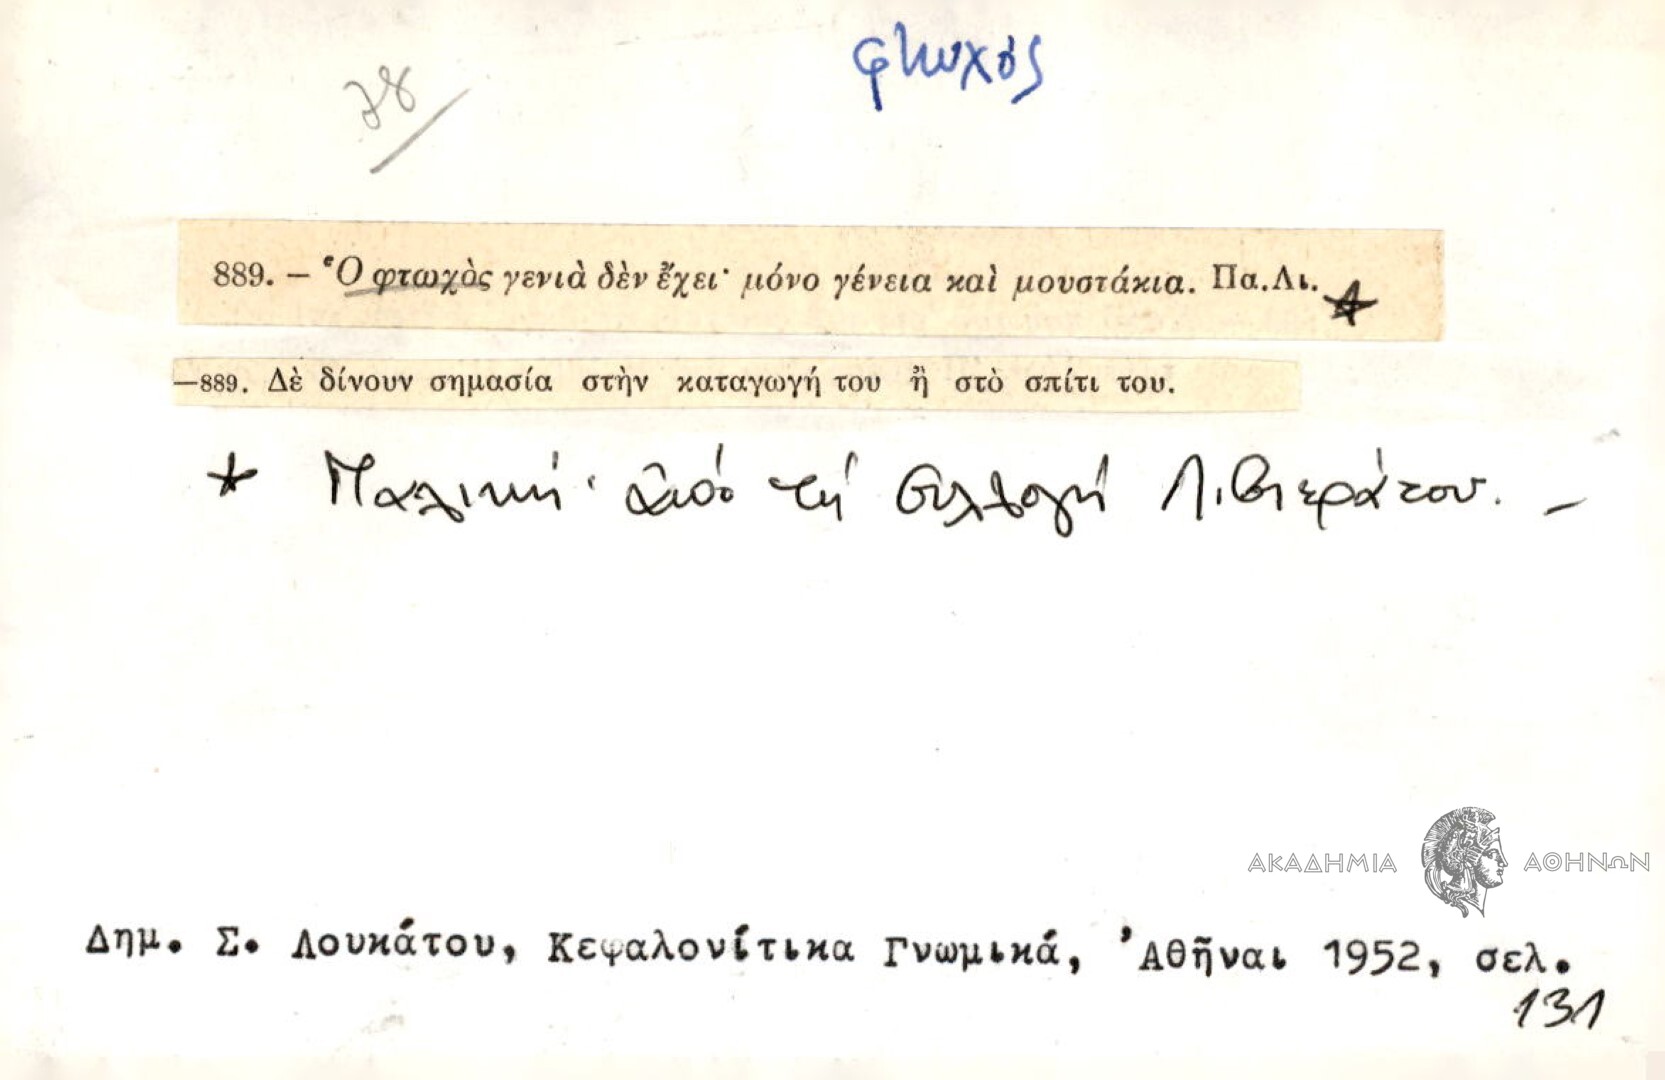 φτωχός
78
889. – Ὁ φτωχὸς γενιὰ δὲν ἔχει· μόνο γένεια καὶ μουστάκια. Πα.Λι.
—889. Δὲ δίνουν σημασία στὴν καταγωγή του ἢ στὸ σπίτι του.
* Παλική· ἀπό τή συλλογή Λιβιεράτου. –
ΑΚΑΔΗΜΙΑ ΑΘΗΝΩΝ
Δημ. Σ. Λουκάτου, Κεφαλονίτικα Γνωμικά, Ἀθῆναι 1952, σελ.
131